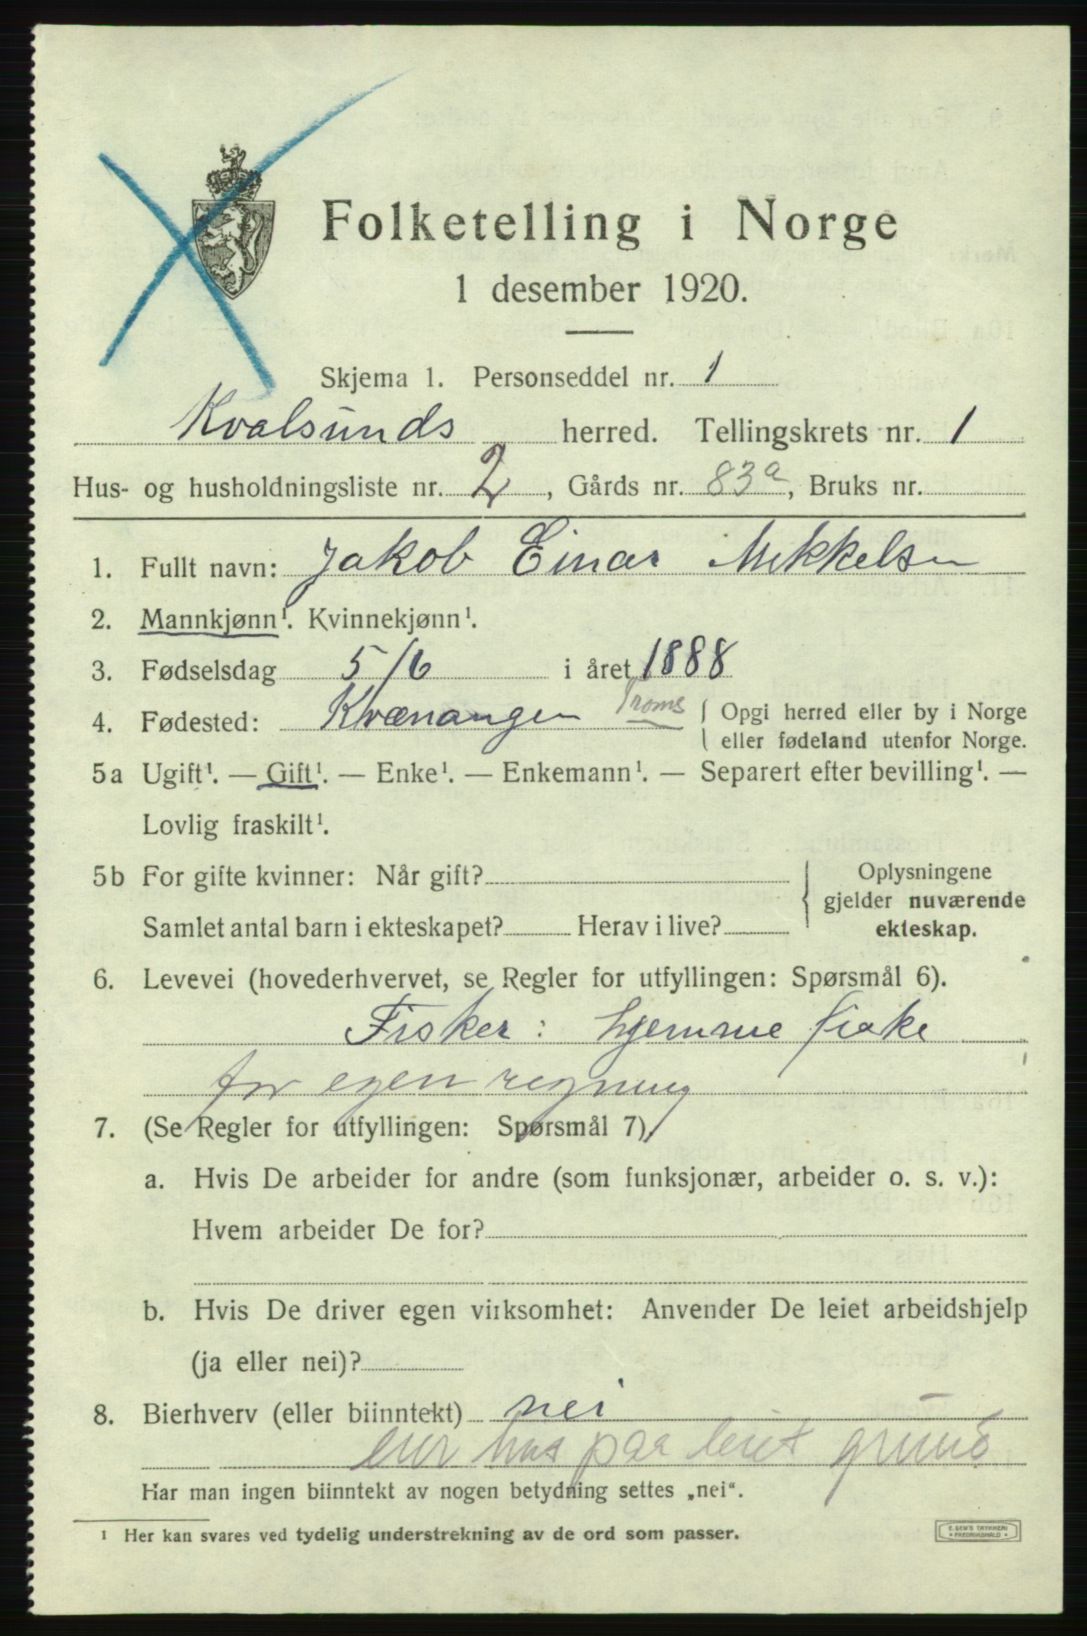 Folketelling i Norge
1 desember 1920.
Skjema 1. Personseddel nr. 1
Kvalsunds herred. Tellingskrets nr. 1
Hus- og husholdningsliste nr. 2, Gårds nr. 83a, Bruks nr.
1. Fullt navn: Jakob Einar Mikkelsen
2. Mannkjønn¹. Kvinnekjønn¹.
3. Fødselsdag 5/6 i året 1888
4. Fødested: Kvænangen Troms { Opgi herred eller by i Norge
eller fødeland utenfor Norge.
5a Ugift¹. — Gift¹. — Enke¹. — Enkemann¹. — Separert efter bevilling¹. —
Lovlig fraskilt¹.
5b For gifte kvinner: Når gift? { Oplysningene
gjelder nuværende
Samlet antal barn i ekteskapet? Herav i live? ekteskap.
6. Levevei (hovederhvervet, se Regler for utfyllingen: Spørsmål 6).
Fisker: hjemme fiske
for egen regning
7. (Se Regler for utfyllingen: Spørsmål 7)
a. Hvis De arbeider for andre (som funksjonær, arbeider o. s. v.):
Hvem arbeider De for?
b. Hvis De driver egen virksomhet: Anvender De leiet arbeidshjelp
(ja eller nei)?
8. Bierhverv (eller biinntekt) nei
eier hus paa leiet grund
Har man ingen biinntekt av nogen betydning settes „nei“.
¹ Her kan svares ved tydelig understrekning av de ord som passer.